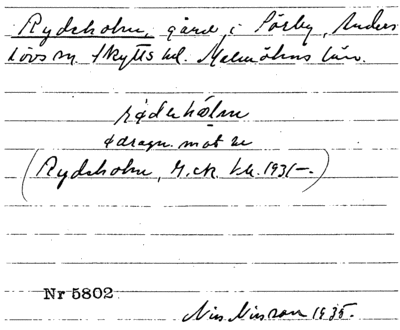 Rydsholm, gård i Sörby, Anders
lövs sn. Skytts hd. Malmöhus län.
rødəhålm
ø dragn. mot œ
(Rydsholm, G.ek. bl. 1931–.)
Nr 5802
Nils Nilsson 1935.